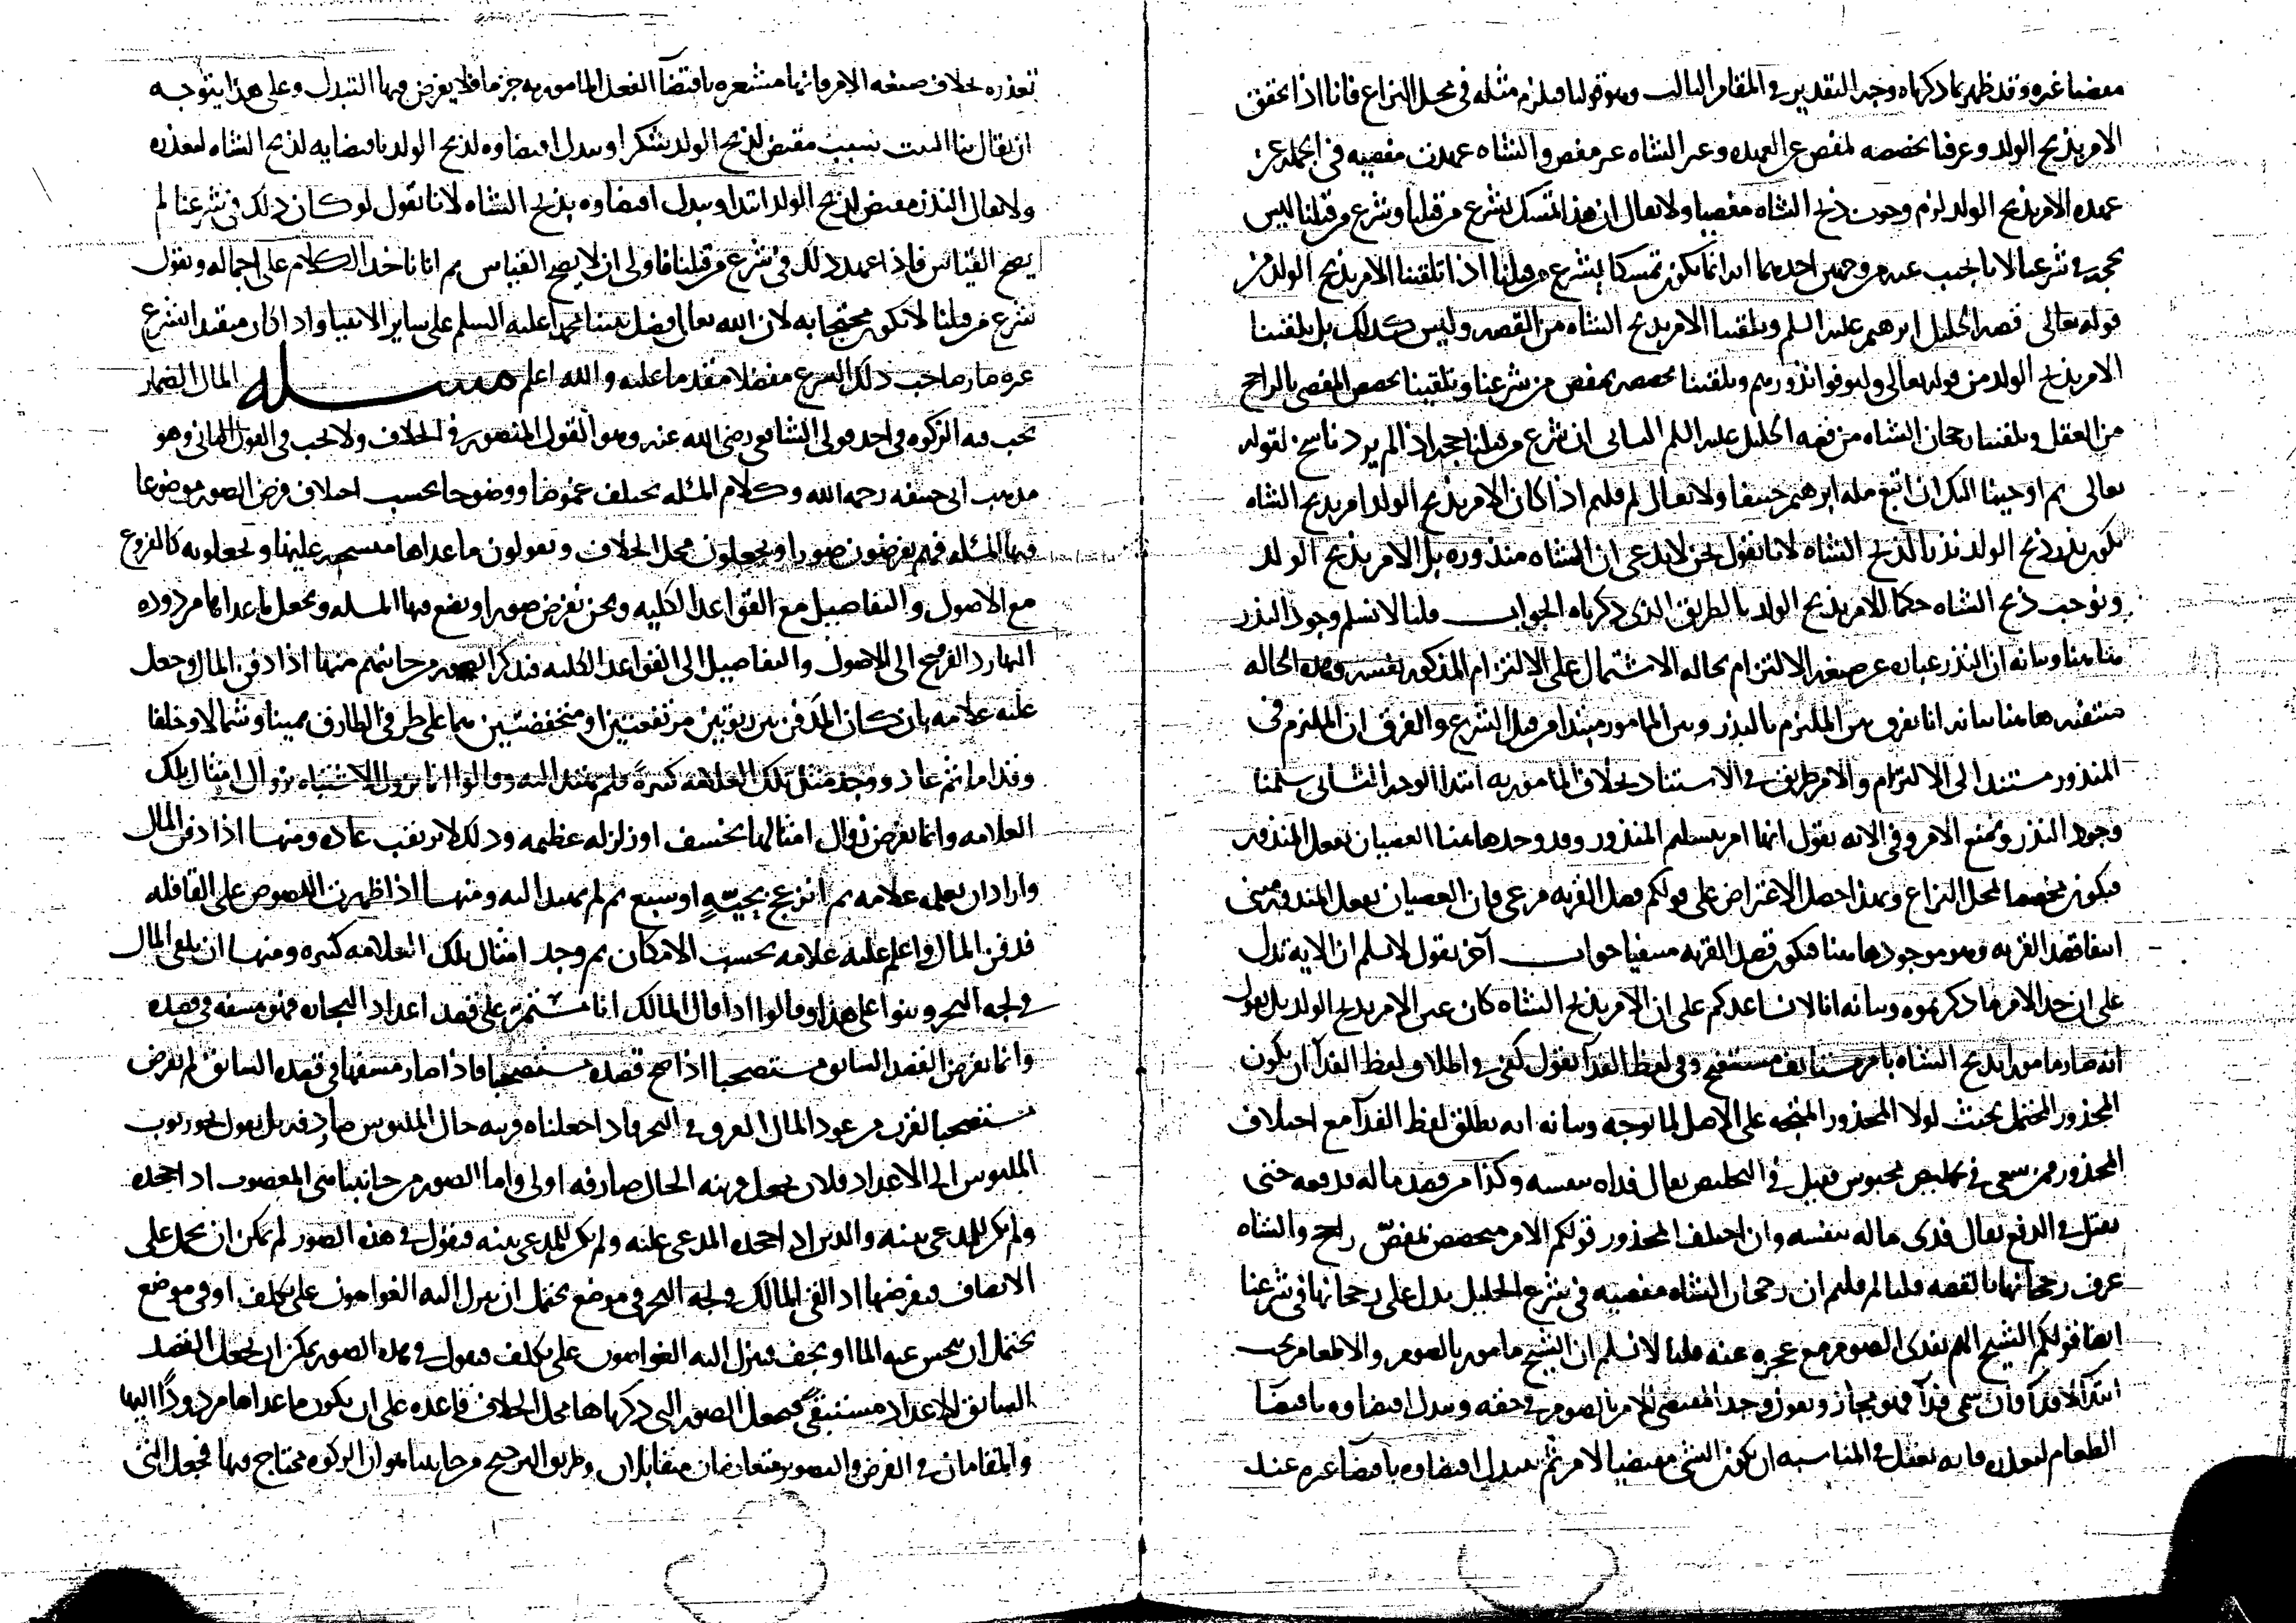 مقتضيا غيره وقد ظهر بما ذكرناه وجه التقدير في المقام الثالث وهو قولنا فيلزم مثله في محل النزاع فانا اذا تحقق
الامر بذبح الولد وعرفنا تخصصه لمقتض عن العهده وغير الشاه غير مقتض والشاه عهدت مقتضيه في الجمله عن
عهده الامر بذبح الولد لزم وجوب ذبح الشاه مقتضيا ولا يقال ان هذا تمسك بشرع من قبلنا وشرع من قبلنا ليس
بحجه في شرعنا لانا نجيب عنه من وجهين احدهما انه انما يكون تمسكا بشرع من قبلنا اذا تلقينا الامر بذبح الولد من
قوله تعالى قصه الخليل ابرهيم عليه السلم وتلقينا الامر بذبح الشاه من القصه وليس كذلك بل تلقينا
الامر بذبح الولد من قوله تعالى وليوفوا نذورهم وتلقينا تخصصه بمقتض من شرعنا وتلقينا تخصص المقتضي بالراجح
من العقل وتلقينا رجحان الشاه من قصه الخليل عليه السلم الثاني ان شرع من قبلنا حجه اذا لم يرد ناسخ لقوله
تعالى ثم اوحينا اليك ان اتبع مله ابرهيم حنيفا ولا يقال لم قلتم اذا كان الامر بذبح الولد امر بذبح الشاه
يكون نذر ذبح الولد نذرا لذبح الشاه لانا نقول نحن لا ندعي ان الشاه منذوره بل الامر بذبح الولد
ونوجب ذبح الشاه حكما للامر بذبح الولد بالطريق الذي ذكرناه الجواب قلنا لا نسلم وجود النذر
هنا هنا وبيانه ان النذر عباره عن صيغه الالتزام بحاله الاشتمال على الالتزام المذكور نفسه وهذه الحاله
منتفيه هاهنا بيانه انا نفرق بين الملتزم بالنذر وبين المامور مبتدا من قبل الشرع والفرق ان الملتزم في
المنذور مستند الى الالتزام والامر طريق في الاستناد بخلاف المامور به ابتدا الوجه الثاني سلمنا
وجود النذر ونمنع الامر وفي الايه نقول انها امر بتسليم المنذور وقد وجد هاهنا العصيان بفعل المنذور
فيكون مخصصا لمحل النزاع وبهذا حصل الاعتراض على قولكم قصد القربه مرعي فان العصيان بفعل المنذور
انتفا قصد القربه وهو موجود هاهنا فيكون قصد القربه منتفيا جواب آخر نقول لا نسلم ان الايه تدل
على ان حد الامر ما ذكرتموه وبيانه انا لا نساعدكم على ان الامر بذبح الشاه كان عين الامر بذبح الولد بل نقول
انه صار مامورا بذبح الشاه بامر مستانف وفي لفظ الفدآ نقول كفى في اطلاق لفظ الفدآ ان يكون
المحذور المحتمل بحيث لولا المحذور المتجه على الاصل لما توجه وبيانه انه يطلق لفظ الفدآ مع اختلاف
المحذور فمن سعى في تخليص محبوس فقتل في التخليص يقال فداه بنفسه وكذا من قصد ماله فدفعه حتى
يقتل في الدفع يقال فدى ماله بنفسه وان اختلف المحذور قولكم الامر مخصص لمقتضٍ راجح والشاه
عرف رجحانها بالقصه قلنا لم قلتم ان رجحان الشاه مقتضيه في شرع الخليل يدل على رجحانها في شرعنا
ايضا قولكم الشيخ الهم يفدي الصوم مع عجزه عنه قلنا لا نسلم ان الشيخ مامور بالصوم والاطعام يجب
ابتدآ لا فدآ وان سمي فدآ فهو مجاز ونقول وجد المقتضي للامر بالصوم في حقه وتبدل اقتضاوه باقتضآ
الطعام لتعذره فانه يعقل في المناسبه ان يكون الشي مقتضيا لامر ثم يتبدل اقتضاوه باقتضآ غيره عند
تعذره بخلاف صيغه الامر فانها مشعره باقتضآ الفعل المامور به جزما فلا يفرض فيها التبدل وعلى هذا يتوجه
ان يقال هنا البيت بسبب مقتض لذبح الولد شكرا وتبدل اقتضاوه لذبح الولد باقتضايه لذبح الشاه لتعذره
ولا يقال النذر مقتض لذبح الولد ابتدا وتبدل اقتضاوه بذبح الشاه لانا نقول لو كان ذلك في شرعنا لم
يصح القياس فاذا عهد ذلك في شرع من قبلنا فاولى ان لا يصح القياس ثم انا ناخذ الكلام على اجماله ونقول
شرع من قبلنا لا يكون محتجا به لان الله تعالى فضل نبينا محمدا عليه السلم على ساير الانبيا واذا كان متبعا لشرع
غيره صار صاحب ذلك الشرع مفضلا مقدما عليه والله اعلم مسـله المال الضمار
تجب فيه الزكوه في احد قولي الشافعي رضي الله عنه وهو القول المنصور في الخلاف ولا تجب في القول الثاني وهو
مذهب ابي حنيفه رحمه الله وكلام المسئله يختلف غموضا ووضوحا بحسب اختلاف فرض الصور موضوعا
فيها المسئله فهم يفرضون صورا ويجعلون محل الخلاف ويقولون ما عداها منسحبه عليها ويجعلونه كالفروع
مع الاصول والتفاصيل مع القواعد الكليه ونحن نفرض صورا ونضع فيها المسله ونجعل ما عداها مردوده
اليها رد الفروع الى الاصول والتفاصيل الى القواعد الكليه فنذكر الصور من جانبهم منها اذا دفن المال وجعل
عليه علامه بان كان المدفن بين ربوتين مرتفعتين او منخفضتين هما على طرفي الطارف يمينا وشمالا وخلفا
وقداما ثم عاد ووجد مثل تلك العلامه كثيره فلم يهتد اليه وقالوا انما يزول الاشتباه بزوال امثال تلك
العلامه وانما يفرض زوال امثالها بخسف او زلزله عظيمه وذلك لا يرتقب عاده ومنها اذا دفن المال
واراد ان يعلمه علامه ثم انزعج بحيّةٍ او سبع ثم لم يهتد اليه ومنها اذا ظهرت اللصوص على القافله
فدفن المال واعلم عليه علامه بحسب الامكان ثم وجد امثال تلك العلامه كثيره ومنها ان يلقي المال
في لجه البحر وبنوا على هذا وقالوا اذا قال المالك انا مستمر على قصد اعداد التجاره فهو مسفه في قصده
وانما يفرض القصد السابق مستصحبا اذا صح قصده مستصحبا فاذا صار مسفها في قصده السابق لم يفرض
مستصحبا لقرب من عود المال الغرق في البحر فاذا جعلناه قرينه حال الملبوس صارفه بل نقول لبوس ثوب
الملبوس الى الاعداد فلان يجعل قرينه الحال صارفه اولى واما الصور من جانبنا هي المغصوب اذا جحده
ولم يكن للمدعي بينه والدين اذا جحده المدعى عليه ولم يكن للمدعي بينه فنقول في هذه الصور لم يمكن ان يحمل على
الانصاف فنفرضها اذا القى المالك في لجه البحر في موضع يحتمل ان ينزل اليه الغواصون على تكلف او في موضع
يحتمل ان ينحسر عنه المآ او يجف فينزل اليه الغواصون على تكلف فنقول في هذه الصور يمكن ان يجعل القصد
السابق للاعداد مستبقى فنجعل الصور التي ذكرناها محل الخلاف قاعده على ان يكون ما عداها مردودًا اليها
والمقامان في الفرض والتصوير متعارضان متقابلان وطريق الترجيح من جانبنا هو ان الزكوه محتاج فيها فجعل الشي